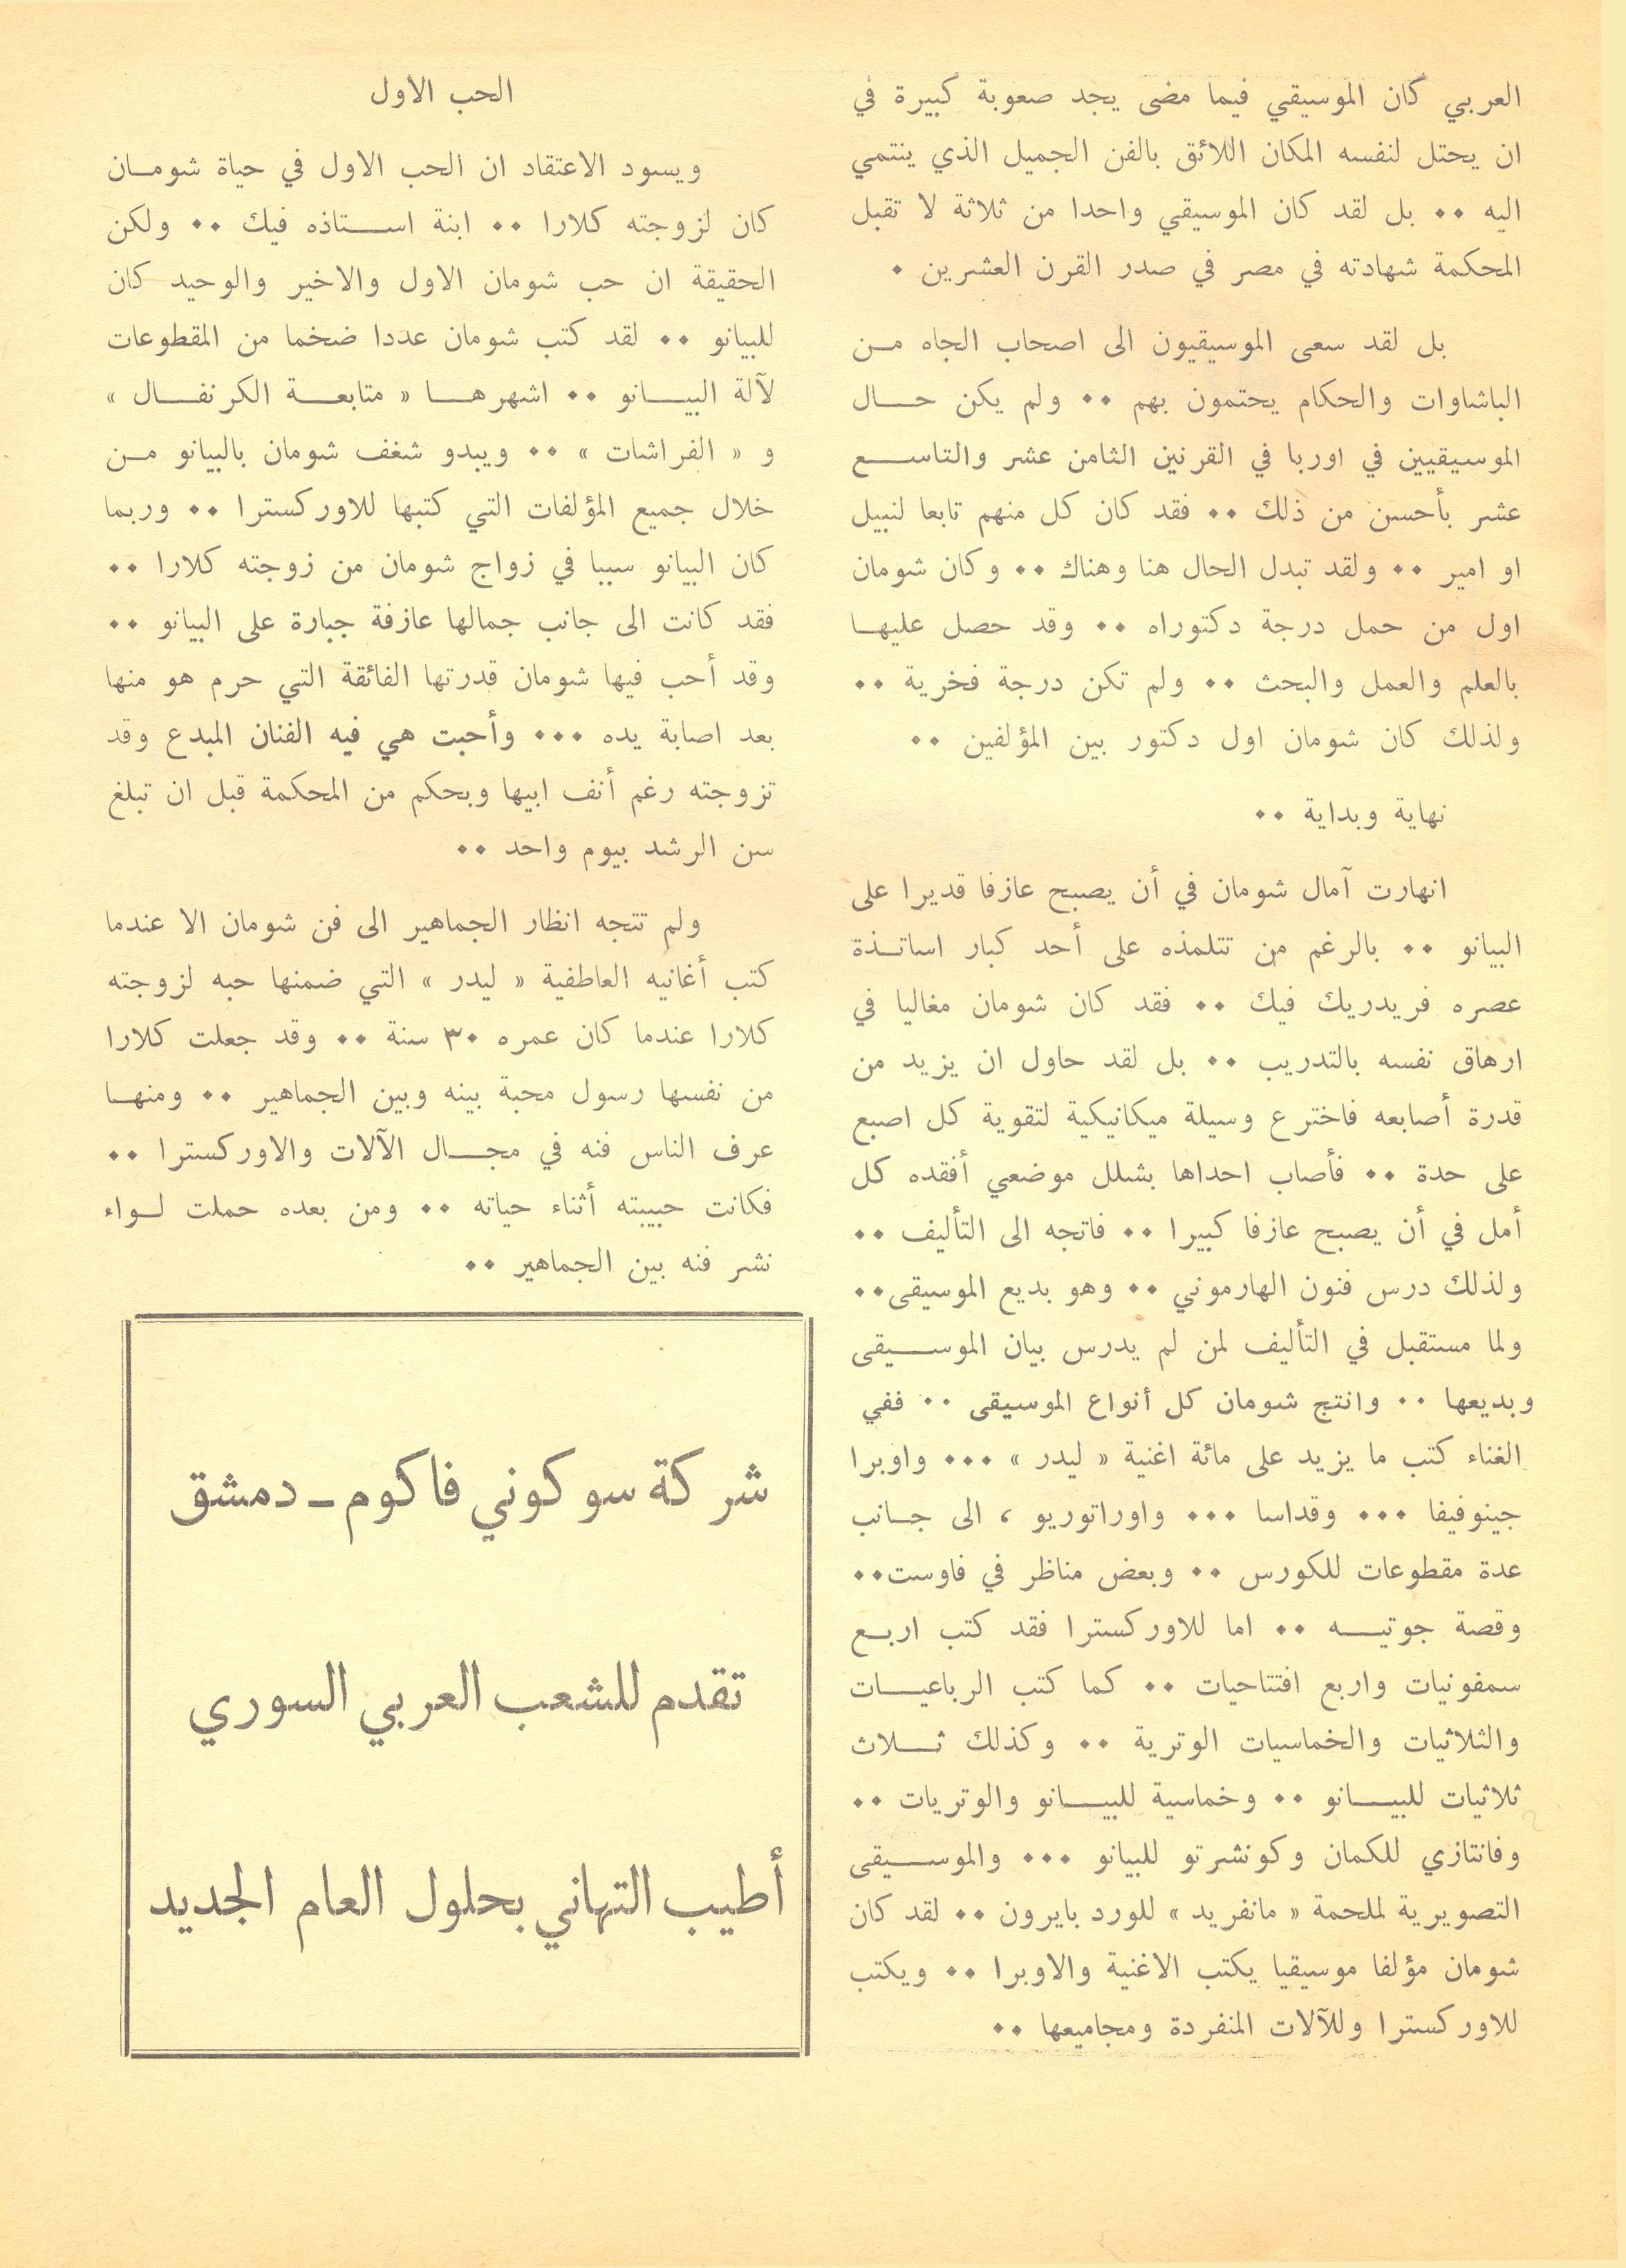 العربي كان الموسيقي فيما مضى يجد صعوبة كبيرة في
ان يحتل لنفسه المكان اللائق بالفن الجميل الذي ينتمي
اليه ٠٠ بل لقد كان الموسيقي واحدا من ثلاثة لا تقبل
المحكمة شهادته في مصر في صدر القرن العشرين ٠
بل لقد سعى الموسيقيون الى اصحاب الجاه مـن
الباشاوات والحكام يحتمون بهم ٠٠ ولم يكن حـال
الموسيقيين في اوربا في القرنين الثامن عشر والتاسـع
عشر بأحسن من ذلك ٠٠ فقد كان كل منهم تابعا لنبيل
او امير ٠٠ ولقد تبدل الحال هنا وهناك ٠٠ وكان شومان
اول من حمل درجة دكتوراه ٠٠ وقد حصل عليهـا
بالعلم والعمل والبحث ٠٠ ولم تكن درجة فخرية ٠٠
ولذلك كان شومان اول دكتور بين المؤلفين ٠٠
نهاية وبداية ٠٠
انهارت آمال شومان في أن يصبح عازفا قديرا على
البيانو ٠٠ بالرغم من تتلمذه على أحد كبار اساتـذة
عصره فريدريك فيك ٠٠ فقد كان شومان مغاليا في
ارهاق نفسه بالتدريب ٠٠ بل لقد حاول ان يزيد من
قدرة أصابعه فاخترع وسيلة ميكانيكية لتقوية كل اصبع
على حدة ٠٠ فأصاب احداها بشلل موضعي أفقده كل
أمل في أن يصبح عازفا كبيرا ٠٠ فاتجه الى التأليف ٠٠
ولذلك درس فنون الهارموني ٠٠ وهو بديع الموسيقى٠٠
ولما مستقبل في التأليف لمن لم يدرس بيان الموسـيقى
وبديعها ٠٠ وانتج شومان كل أنواع الموسيقى ٠٠ ففي
الغناء كتب ما يزيد على مائة اغنية « ليدر » ٠٠٠ واوبرا
جينوفيفا ٠٠٠ وقداسا ٠٠٠ واوراتوريو ، الى جـانب
عدة مقطوعات للكورس ٠٠ وبعض مناظر في فاوست٠٠
وقصة جوتيـه ٠٠ اما للاوركسترا فقد كتب اربـع
سمفونيات واربع افتتاحيات ٠٠ كما كتب الرباعيـات
والثلاثيات والخماسيات الوترية ٠٠ وكذلك ثـلاث
ثلاثيات للبيـانو ٠٠ وخماسية للبيـانو والوتريات ٠٠
وفانتازي للكمان وكونشرتو للبيانو ٠٠٠ والموسـيقى
التصويرية لملحمة « مانفريد » للورد بايرون ٠٠ لقد كان
شومان مؤلفا موسيقيا يكتب الاغنية والاوبرا ٠٠ ويكتب
للاوركسترا وللآلات المنفردة ومجاميعها ٠٠
الحب الاول
ويسود الاعتقاد ان الحب الاول في حياة شومـان
كان لزوجته كلارا ٠٠ ابنة اسـتاذه فيك ٠٠ ولكن
الحقيقة ان حب شومان الاول والاخير والوحيد كان
للبيانو ٠٠ لقد كتب شومان عددا ضخما من المقطوعات
لآلة البيـانو ٠٠ اشهرهـا « متابعـة الكرنفـال »
و « الفراشات » ٠٠ ويبدو شغف شومان بالبيانو مـن
خلال جميع المؤلفات التي كتبها للاوركسترا ٠٠ وربما
كان البيانو سببا في زواج شومان من زوجته كلارا ٠٠
فقد كانت الى جانب جمالها عازفة جبارة على البيانو ٠٠
وقد أحب فيها شومان قدرتها الفائقة التي حرم هو منها
بعد اصابة يده ٠٠٠ وأحبت هي فيه الفنان المبدع وقد
تزوجته رغم أنف ابيها وبحكم من المحكمة قبل ان تبلغ
سن الرشد بيوم واحد ٠٠
ولم تتجه انظار الجماهير الى فن شومان الا عندما
كتب أغانيه العاطفية « ليدر » التي ضمنها حبه لزوجته
كلارا عندما كان عمره ٣٠ سنة ٠٠ وقد جعلت كلارا
من نفسها رسول محبة بينه وبين الجماهير ٠٠ ومنهـا
عرف الناس فنه في مجـال الآلات والاوركسترا ٠٠
فكانت حبيبته أثناء حياته ٠٠ ومن بعده حملت لـواء
نشر فنه بين الجماهير ٠٠
شركة سوكوني فاكوم ـ دمشق
تقدم للشعب العربي السوري
أطيب التهاني بحلول العام الجديد